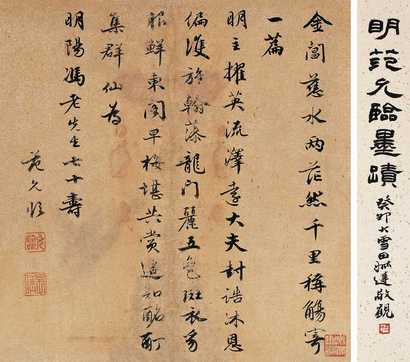 明范允臨墨蹟
癸卯大雪田敬觀
金閶慈水兩茫然千里稱觴寄
一篇
明主擢英流澤遠大夫封誥沐恩
偏翰藻龍門麗五色斑衣
服鮮東閣早梅堪共賞遙知酩酊
集群仙為
明陽馮老先生七十壽
范允臨